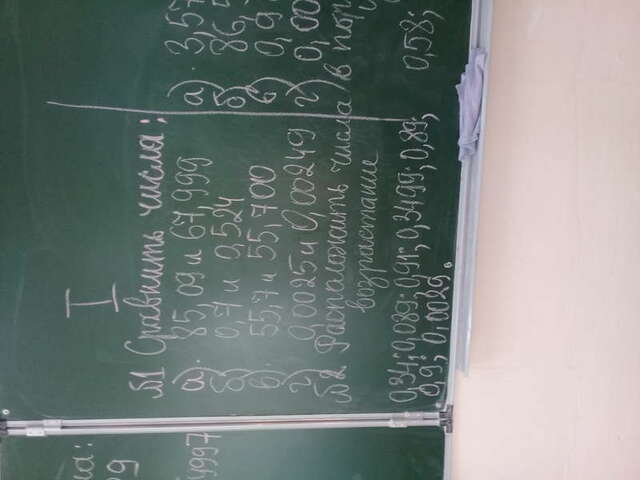 ла:
9
4997
I
№1 Сравнить числа:
а). 85,09 и 67,999
б) 0,7 и 0,524
в). 55,7 и 55,700
г) 0,0025 и 0,00249
№2 Расположить числа в пор
возрастание
0,34; 0,089; 0,91; 0,3499; 0,89;
0,9; 0,0029.
а). 3,57
б) 86,5
в) 0,9
г) 0,00
0,58;